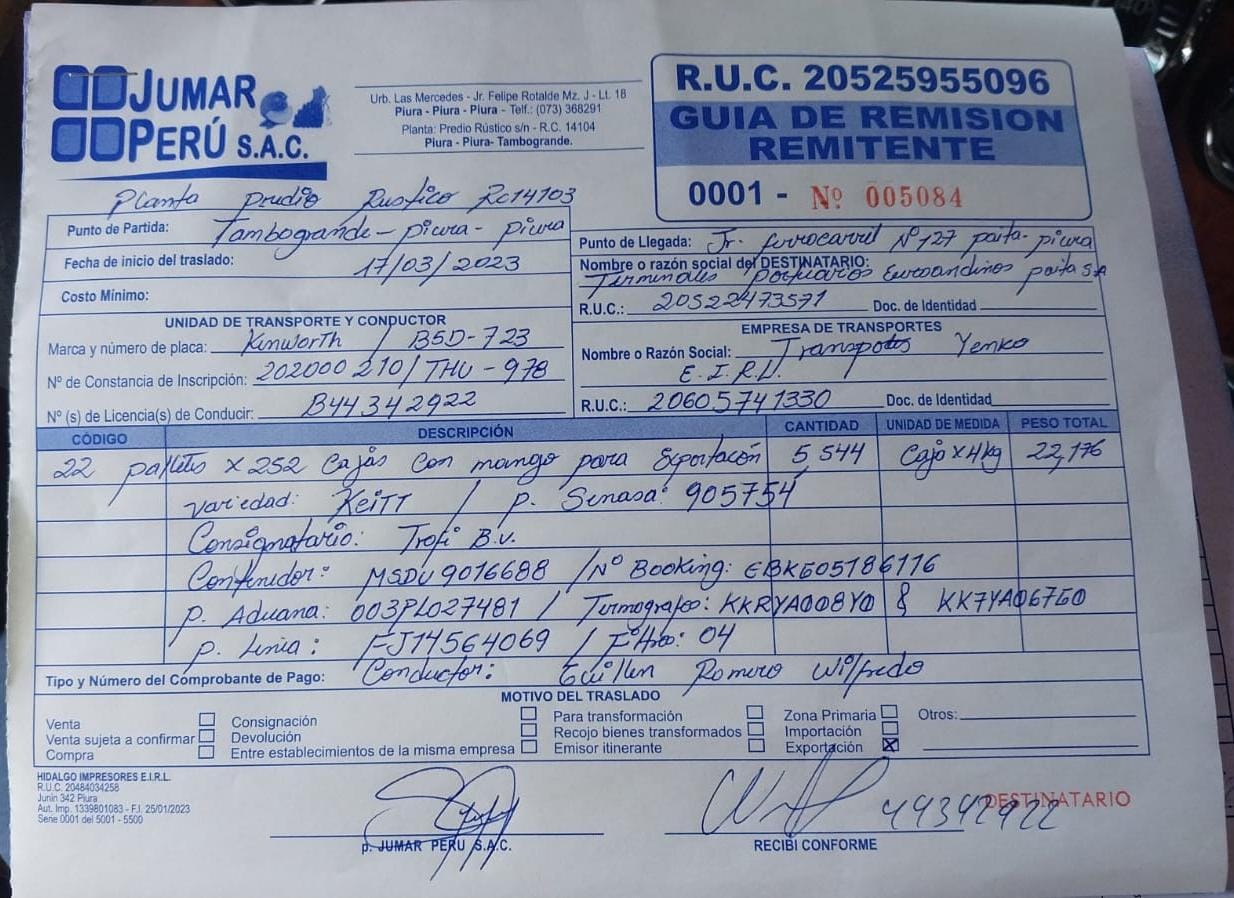 JUMAR
PERÚ S.A.C.
Urb. Las Mercedes - Jr. Felipe Rotalde Mz. J - Lt. 18
Piura - Piura - Piura - Telf.: (073) 368291
Planta: Predio Rústico s/n - R.C. 14104
Piura - Piura- Tambogrande.
R.U.C. 20525955096
GUIA DE REMISION
REMITENTE
0001 - Nº 005084
Planta Predio Rustico Rc14103
Punto de Partida: Tambogrande - piura - piura
Fecha de inicio del traslado: 17/03/2023
Costo Mínimo:
Punto de Llegada: Jr. ferrocarril Nº 127 paita- piura
Nombre o razón social del DESTINATARIO:
Terminales portuarios Euroandinos paita S.A
R.U.C.: 20522473571 Doc. de Identidad
UNIDAD DE TRANSPORTE Y CONDUCTOR
Marca y número de placa: Kenworth / B5D-723
Nº de Constancia de Inscripción: 202000 210 / THU - 978
Nº (s) de Licencia(s) de Conducir: B44342922
EMPRESA DE TRANSPORTES
Nombre o Razón Social: Transpotes Yenko
E.I.R.L.
R.U.C.: 20605741330 Doc. de Identidad
CÓDIGO DESCRIPCIÓN CANTIDAD UNIDAD DE MEDIDA PESO TOTAL
22 palletis x 252 Cajas con mango para Exportación 5 544 Caja x 4kg 22,176
variedad: KeiTT / p. Senasa: 905754
Consignatario: Trofi B.v.
Contenedor: MSDU9016688 / Nº Booking: EBKG05186116
p. Aduana: 003PL027481 / Termografos: KKRYA008Y0 & KK7YA067G0
p. Linea: FJ14564069 / Filtro: 04
Tipo y Número del Comprobante de Pago: Conductor: Guillen Romero Wilfredo
MOTIVO DEL TRASLADO
Venta
Venta sujeta a confirmar
Compra
Consignación
Devolución
Entre establecimientos de la misma empresa
Para transformación
Recojo bienes transformados
Emisor itinerante
Zona Primaria
Importación
Exportación X
Otros:
HIDALGO IMPRESORES E.I.R.L.
R.U.C. 20484034258
Junín 342 Piura
Aut. Imp. 1339801083 - F.I. 25/01/2023
Serie 0001 del 5001 - 5500
p. JUMAR PERU S.A.C.
RECIBÍ CONFORME
44342922
DESTINATARIO